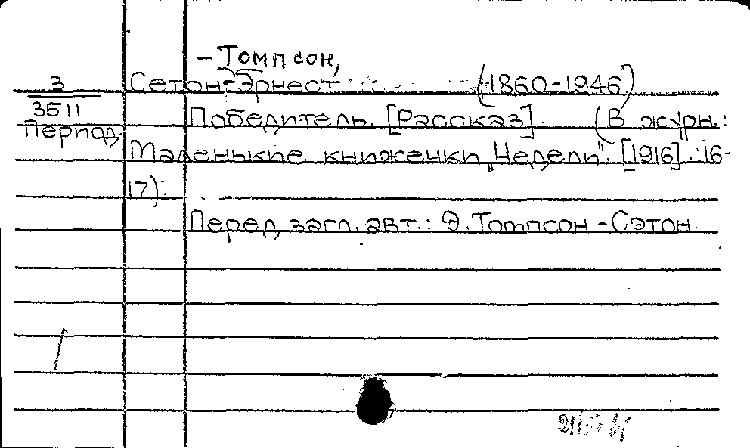 -Томпсон,
З Сетон-Эрнест (1860-1946)
3511 Победитель. [Рассказ]. (В журн.:
Период. Маленькие книжечки „Недели". [1916]. 16-
17).
Перед загл. авт.: Э. Томпсон-Сэтон